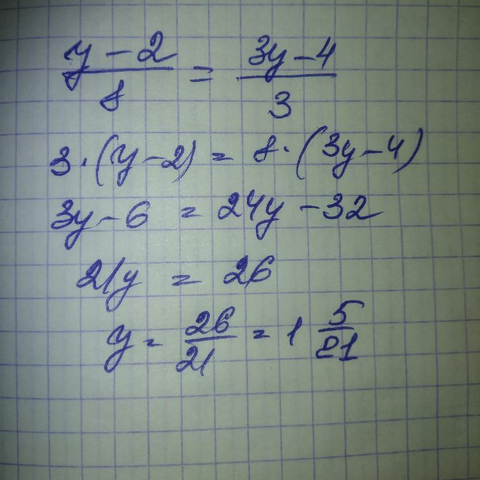 y - 2 / 8 = 3y - 4 / 3
3 · (y - 2) = 8 · (3y - 4)
3y - 6 = 24y - 32
21y = 26
y = 26/21 = 1 5/21